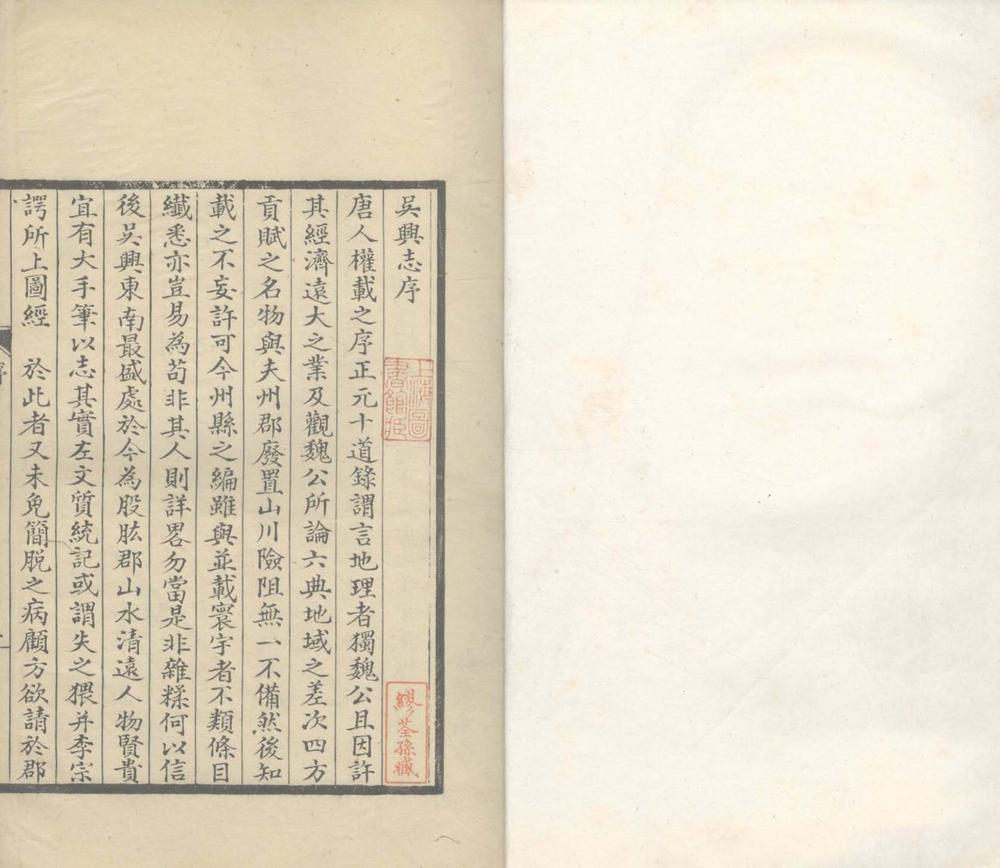 吳興志序
上海圖
書館藏
繆荃孫藏
唐人權載之序正元十道錄謂言地理者獨魏公且因許
其經濟遠大之業及觀魏公所論六典地域之差次四方
貢賦之名物與夫州郡廢置山川險阻無一不備然後知
載之不妄許可今州縣之編雖與並載寰宇者不類條目
纎悉亦豈易為苟非其人則詳畧勿當是非雜糅何以信
後吳興東南最盛處於今為股肱郡山水清遠人物賢貴
宜有大手筆以志其實左文質統記或謂失之猥并李宗
諤所上圖經　於此者又未免簡脱之病顧方欲請於郡
序